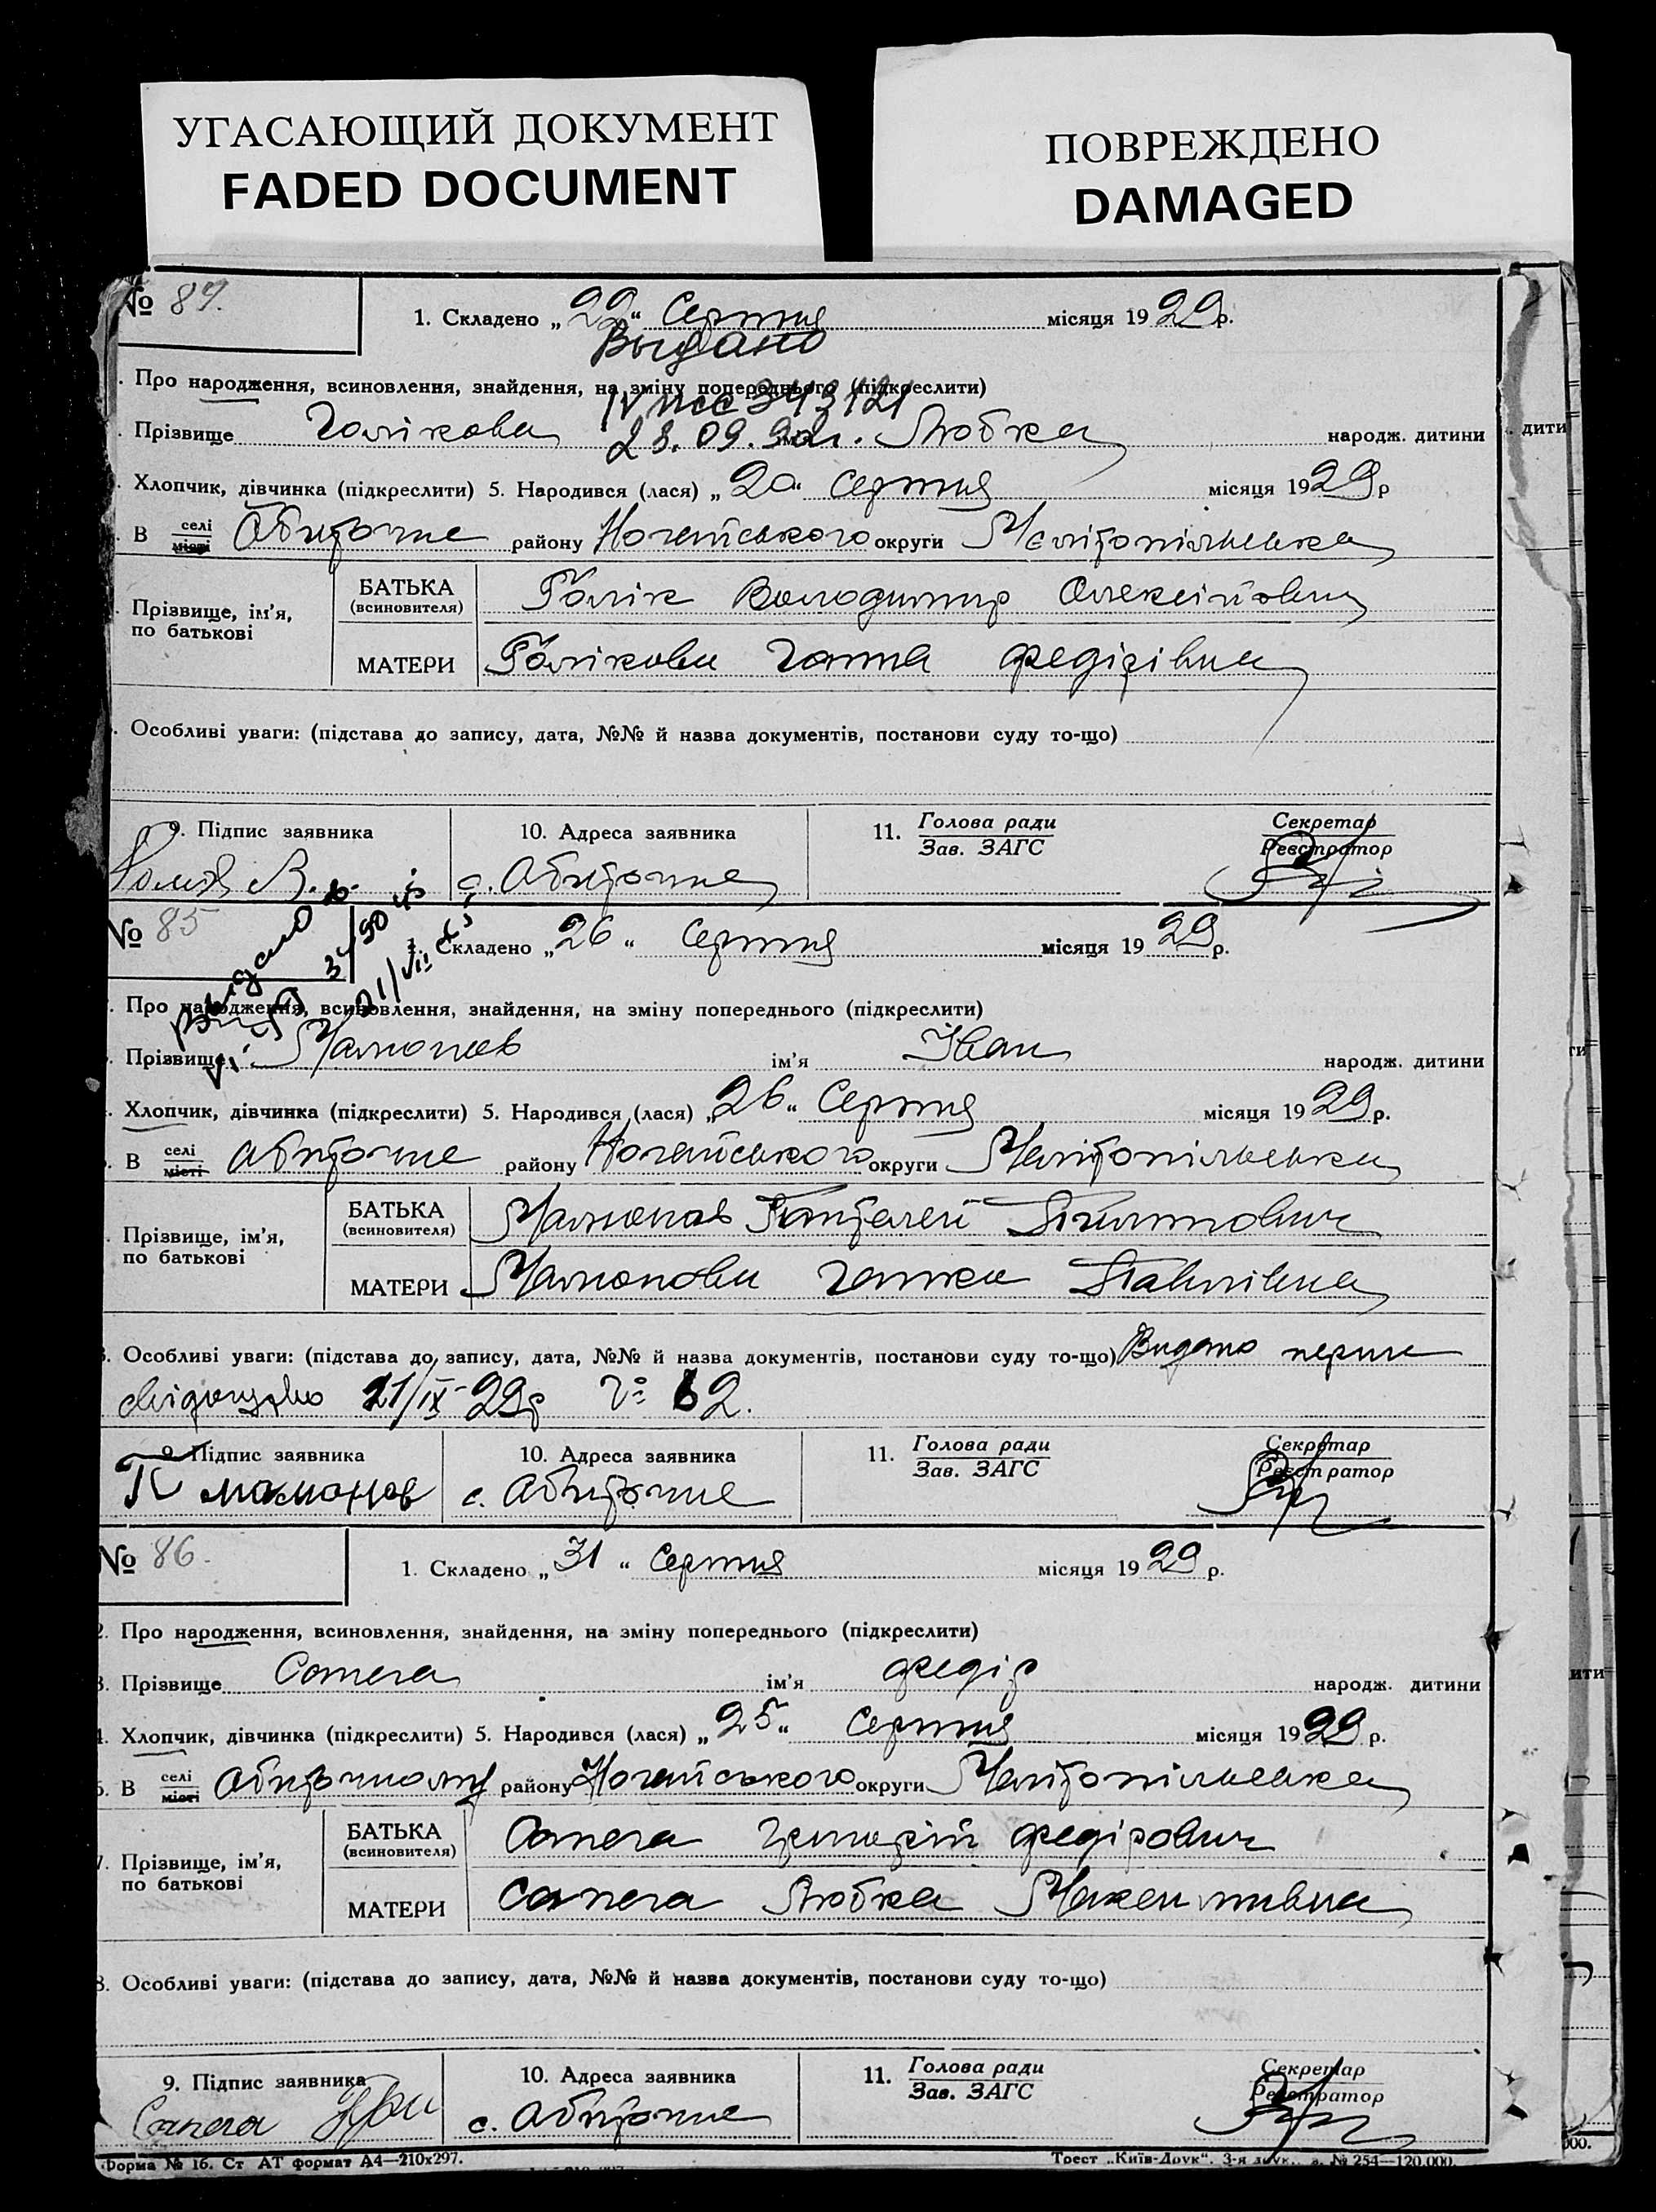 УГАСАЮЩИЙ ДОКУМЕНТ
FADED DOCUMENT
ПОВРЕЖДЕНО
DAMAGED
№ 84.
1. Складено „22“ Серпня місяця 1929 р.
Выдано
Про народження, всиновлення, знайдення, на зміну попереднього (підкреслити)
343121
Прізвище Голікова Любка народж. дитини
28.09.
Хлопчик, дівчинка (підкреслити) 5. Народився (лася) „20“ Серпня місяця 1929 р
В селі місті Обиточне району Ногайського округи Мелітопільська
Прізвище, ім’я, по батькові
БАТЬКА (всиновителя) Голік Володимир Олексійович
МАТЕРИ Голікова Ганна Федірівна
Особливі уваги: (підстава до запису, дата, №№ й назва документів, постанови суду то-що)
9. Підпис заявника
10. Адреса заявника
11. Голова ради Зав. ЗАГС
Секретар Реєстратор
с. Обиточне
№ 85
1. Складено „26“ Серпня місяця 1929 р.
Про народження, всиновлення, знайдення, на зміну попереднього (підкреслити)
Прізвище Мамонов ім’я Іван народж. дитини
Хлопчик, дівчинка (підкреслити) 5. Народився (лася) „26“ Серпня місяця 1929 р.
В селі місті Обиточне району Ногайського округи Мелітопільська
Прізвище, ім’я, по батькові
БАТЬКА (всиновителя) Мамонов Пантелей
МАТЕРИ Мамонова Ганна Павлівна
Особливі уваги: (підстава до запису, дата, №№ й назва документів, постанови суду то-що) Видано перше
свідоцтво 21/IX-29р № 62.
9. Підпис заявника
10. Адреса заявника
11. Голова ради Зав. ЗАГС
Секретар Реєстратор
П мамонов
с. Обиточне
№ 86.
1. Складено „31“ Серпня місяця 1929 р.
2. Про народження, всиновлення, знайдення, на зміну попереднього (підкреслити)
3. Прізвище Сапега ім’я Федір народж. дитини
4. Хлопчик, дівчинка (підкреслити) 5. Народився (лася) „25“ Серпня місяця 1929 р.
6. В селі місті Обиточному району Ногайського округи Мелітопільська
7. Прізвище, ім’я, по батькові
БАТЬКА (всиновителя) Сапега Григорій Федірович
МАТЕРИ Сапега Любка
8. Особливі уваги: (підстава до запису, дата, №№ й назва документів, постанови суду то-що)
9. Підпис заявника
10. Адреса заявника
11. Голова ради Зав. ЗАГС
Секретар Реєстратор
Сапега
с. Обиточне
Форма № 16. Ст АТ формат А4—210х297.
Трест „Київ-Друк“. № 254—120.000.